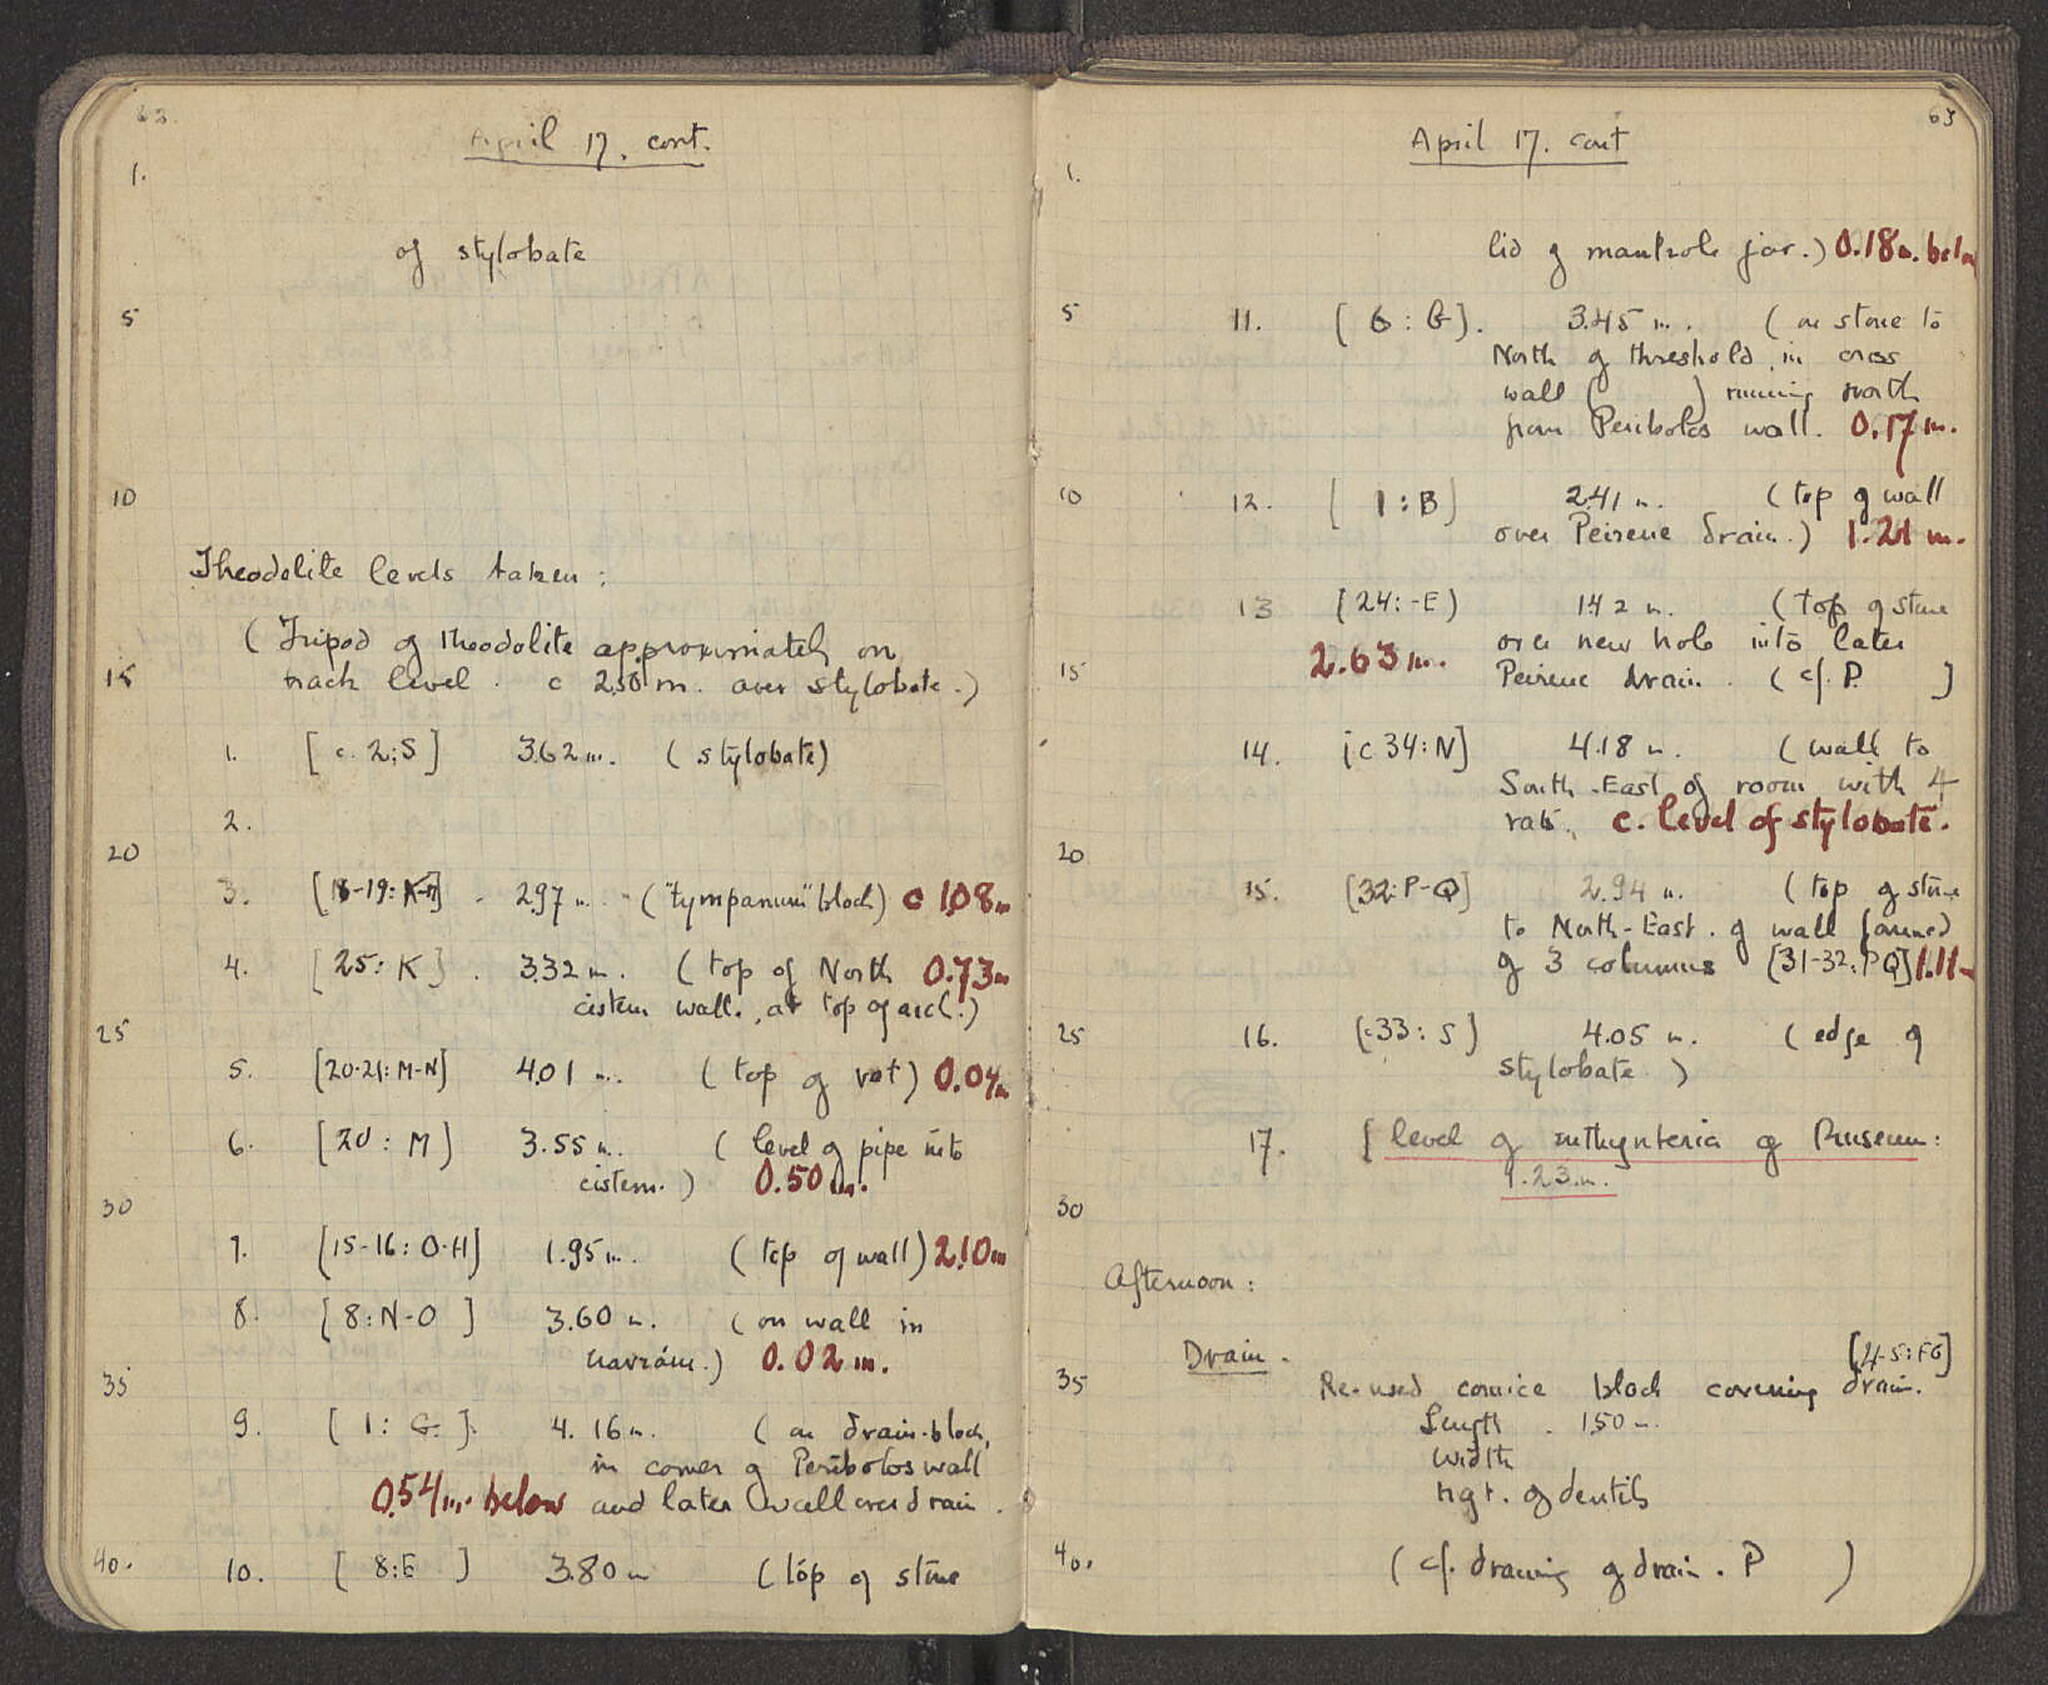 62.
April 17. cont.
1.
of stylobate
5
10
Theodolite levels taken:
( Tripod of theodolite approximately on
15
track level. c 2.50 m. over stylobate.)
1. [ c. 2:S ] 3.62 m. ( stylobate)
2.
20
3. [18-19: ] . 2.97 m. ("tympanum" block) c 1.08 m
4. [ 25: K ] . 3.32 m. ( top of North 0.73 m
cistern wall, at top of arch.)
25
5. [20-21: M-N] 4.01 m. ( top of vat) 0.04 m
6. [ 20 : M ] 3.55 m. ( level of pipe into
cistern. ) 0.50 m.
30
7. [15-16: O-H] 1.95 m. ( top of wall) 2.10 m
8. [ 8: N-O ] 3.60 m. ( on wall in
0.02 m.
35
9. [ 1: G. ]. 4.16 m. ( on drain-block,
in corner of Peribolos wall
0.54 m. below and later wall over drain.
40. 10. [ 8:E ] 3.80 m ( top of stone
63
April 17. cont
1.
lid of manhole jar.) 0.18 m. below
5 11. [ 6 : G ]. 3.45 m. ( on stone to
North of threshold, in cross
wall ( ) running north
from Peribolos wall. 0.17 m.
10 12. [ 1: B ] 2.41 m. ( top of wall
over Peirene drain.) 1.21 m.
13 [24: -E] 1.42 m. ( top of stone
2.63 m. over new hole into later
15 Peirene drain. ( cf. P. ]
14. [c 34: N] 4.18 m. ( wall to
South-East of room with 4
vats. c. level of stylobate.
20
15. [32: P-Q] 2.94 m. ( top of stone
to North-East. of wall formed
of 3 columns [31-32: PQ] 1.11 m
25 16. [c 33: S ] 4.05 m. ( edge of
stylobate )
17. [ level of euthynteria of Museum:
1.23 m.
30
Afternoon:
Drain. [4-5: FG]
35 Re-used cornice block covering drain.
Length . 1.50 m.
width
hgt. of dentils
40. ( cf. drawing of drain. P )